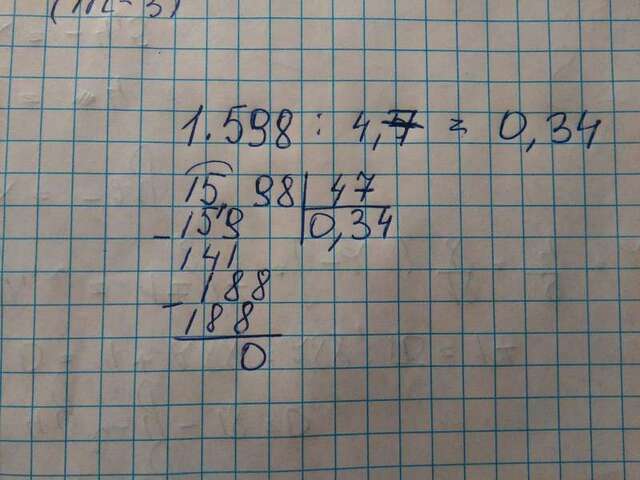 1.598 : 4,7 = 0,34
15,98 | 47
- 159 | 0,34
141
- 188
188
0